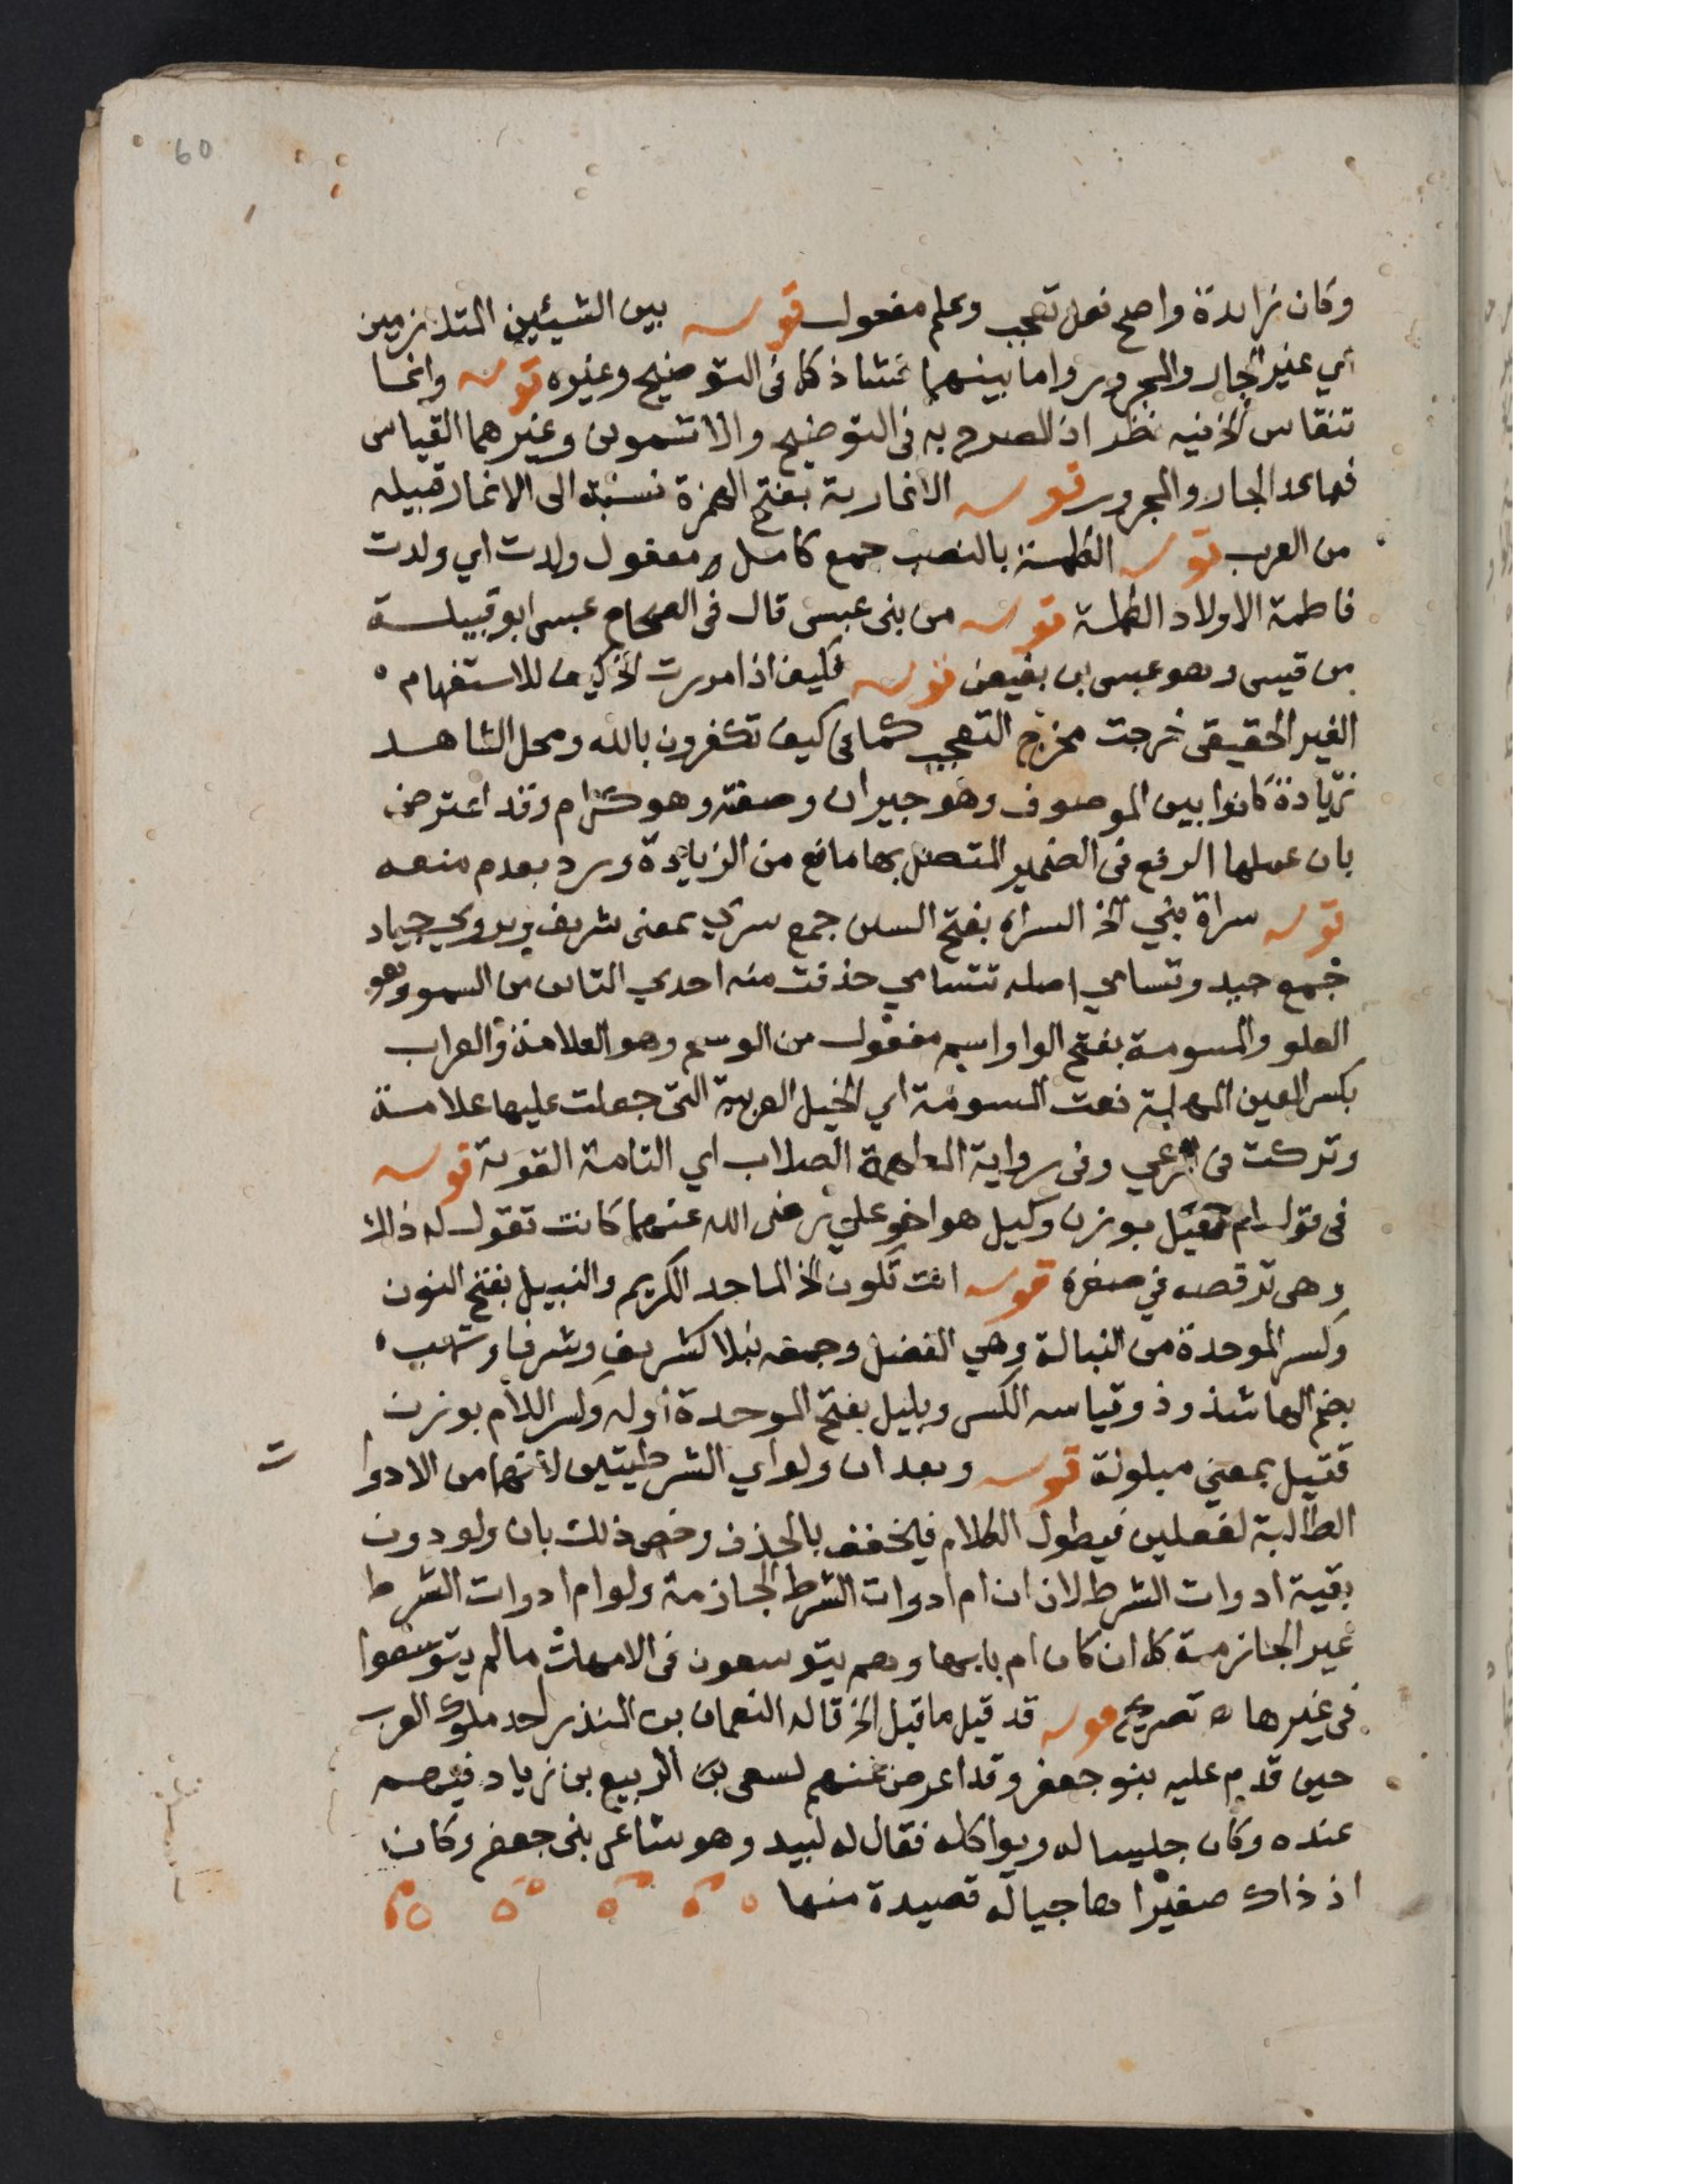 60
وكان زايدة واصح فعل تعجب وعلم مفعول قوله بين الشيئين المتلازمين
اي غير الجار والمجرور واما بينهما فشاذ كما في التوضيح وغيره قوله وانما
تنقاس الخ فيه نظر اذ المصرح به في التوضيح والاشموني وغيرهما القياس
فيما عدا الجار والمجرور قوله الانمارية بفتح الهمزة نسبة الى الانمار قبيله
من العرب قوله الكملة بالنصب جمع كامل مفعول ولدت اي ولدت
فاطمة الاولاد الكملة قوله من بني عبس قال في الصحاح عبس ابو قبيلة
من قيس وهو عبس بن بغيض قوله فكيف اذا مررت الخ كيف للاستفهام
الغير الحقيقي خرجت مخرج التعجب كما في كيف تكفرون بالله ومحل الشاهد
زيادة كانوا بين الموصوف وهو جيران وصفته وهو كرام وقد اعترض
بان عملها الرفع في الضمير المتصل بها مانع من الزيادة ورد بعدم منعه
قوله سراة بني الخ السراة بفتح السين جمع سري بمعنى شريف ويروي جياد
جمع جيد وتسامي اصله تتسامي حذفت منه احدي التائين من السمو وهو
العلو والمسومة بفتح الواو اسم مفعول من الوسم وهو العلامة والعراب
بكسر العين المهملة نعت المسومة اي الخيل العربية التي جعلت عليها علامة
وتركت في المرعي وفي رواية المطهمة الصلاب اي التامة القوية قوله
في قول ام عقيل بوزن وكيل هو اخو علي رضى الله عنهما كانت تقول له ذلك
وهي ترقصه في صغره قوله انت تكون الخ الماجد الكريم والنبيل بفتح النون
وكسر الموحدة من النبالة وهي الفضل وجمعه نبلا كشريف وشرفا وتهب
بضم الها شذوذ وقياسه الكسر وبليل بفتح الموحدة اوله وكسر اللام بوزن
قتيل بمعني مبلولة قوله وبعد ان ولو اي الشرطيتين لانهما من الادوا
ت
الطالبة لفعلين فيطول الكلام فيخفف بالحذف وخص ذلك بان ولو دون
بقية ادوات الشرط لان ان ام ادوات الشرط الجازمة ولو ام ادوات الشرط
غير الجازمة كما ان كان ام بابها وهم يتوسعون في الامهات ما لم يتوسعوا
في غيرها ه تصريح قوله قد قيل ما قيل الخ قاله النعمان بن المنذر احد ملوك العرب
حين قدم عليه بنو جعفر وقد اعرض عنهم لسعى بن الربيع بن زياد فيهم
عنده وكان جليسا له ويواكله فقال له لبيد وهو شاعر بني جعفر وكان
اذ ذاك صغيرا هاجيا له قصيدة منها